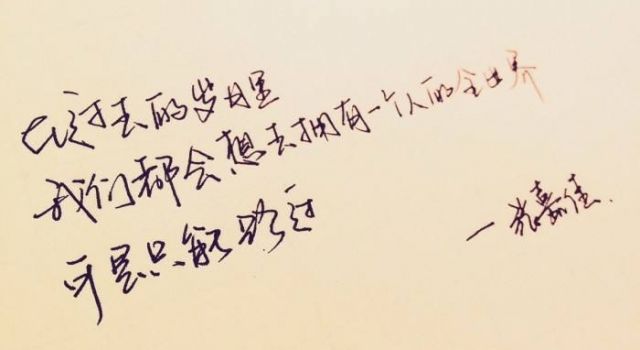 在过去的岁月里
我们都会想去拥有一个人的全世界
可是只能路过
—张嘉佳